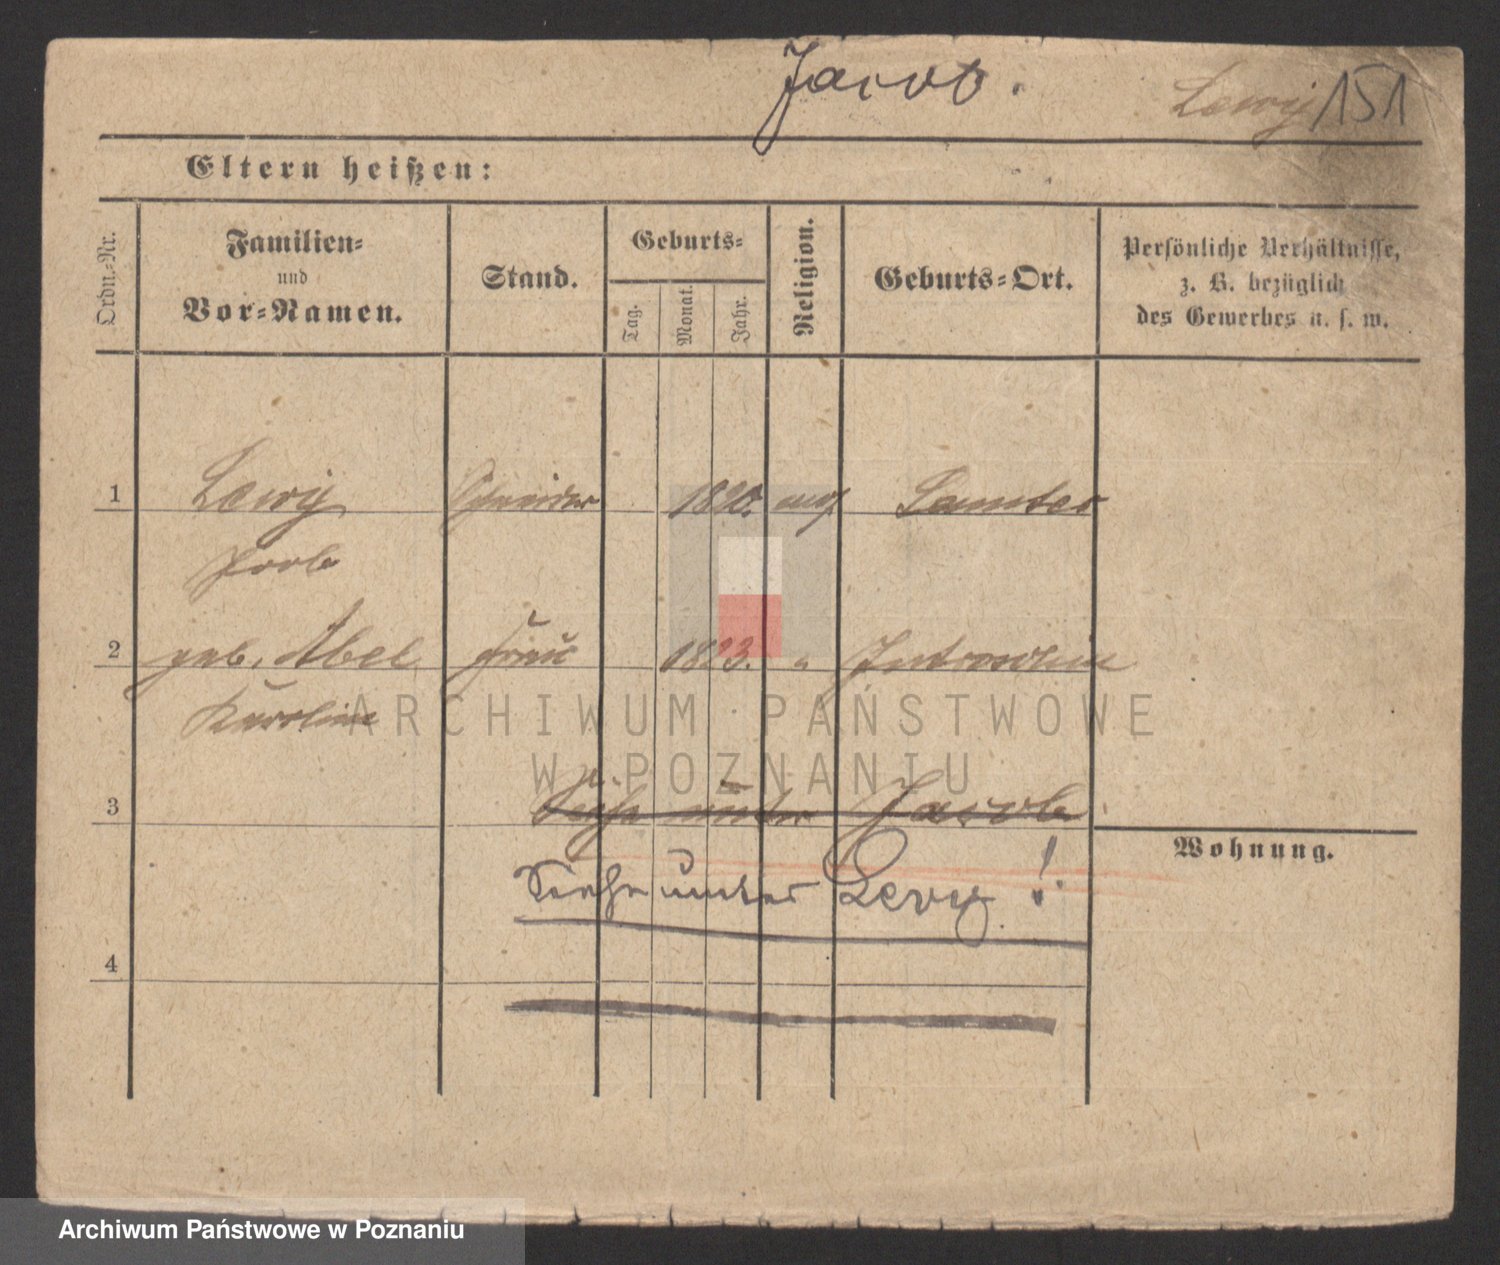 Jacob.
Lewy 151
Eltern heißen:
Ordn.-Nr.
Familien-
und
Vor-Namen.
Stand.
Geburts-
Tag.
Monat.
Jahr.
Religion.
Geburts-Ort.
Persönliche Verhältnisse,
z. B. bezüglich
des Gewerbes u. s. w.
1 Lewy Schneider 1820. mos. Samter
Jacob
2 geb. Abel Frau 1823. " Jutroschin
Karoline
3 Siehe unter Jacob
Wohnung.
Siehe unter Levy!
4
ARCHIWUM PAŃSTWOWE
W POZNANIU
Archiwum Państwowe w Poznaniu